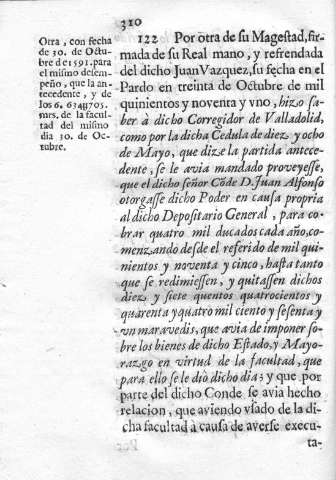 310
Otra, con fecha
de 30. de Octu-
bre de 1591. para
el mismo desem-
peño, que la an-
tecedente, y de
los 6. 634ɥ705.
mrs. de la facul-
tad del mismo
dia 30. de Oc-
tubre.
122 Por otra de su Magestad, fir-
mada de su Real mano, y refrendada
del dicho Juan Vazquez, su fecha en el
Pardo en treinta de Octubre de mil
quinientos y noventa y vno, hizo sa-
ber à dicho Corregidor de Valladolid,
como por la dicha Cedula de diez y ocho
de Mayo, que dize la partida antece-
dente, se le avia mandado proveyesse,
que el dicho señor Cõde D. Juan Alfonso
otorgasse dicho Poder en causa propria
al dicho Depositario General, para co-
brar quatro mil ducados cada año, co-
menzando desde el referido de mil qui-
nientos y noventa y cinco, hasta tanto
que se redimiessen, y quitassen dichos
diez y siete quentos quatrocientos y
quarenta y quatro mil ciento y sesenta y
vn maravedis, que avia de imponer so-
bre los bienes de dicho Estado, y Mayo-
razgo en virtud de la facultad, que
para ello se le diò dicho dia; y que por
parte del dicho Conde se avia hecho
relacion, que aviendo vsado de la di-
cha facultad à causa de averse execu-
ta-